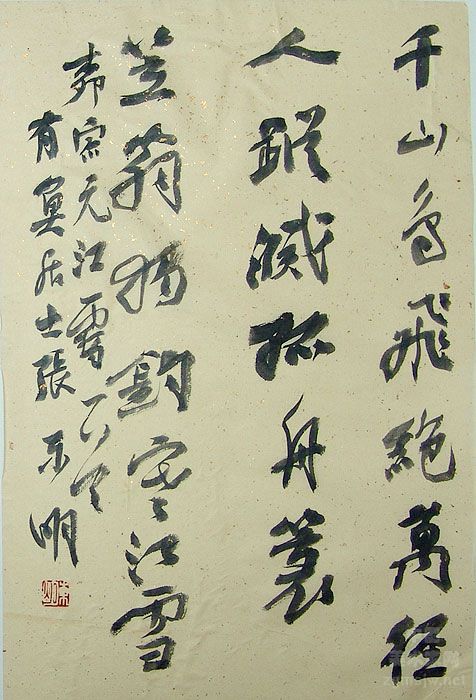 千山鳥飛絶萬徑
人蹤滅孤舟蓑
笠翁獨釣寒江雪
柳宗元江雪
有居士張東明